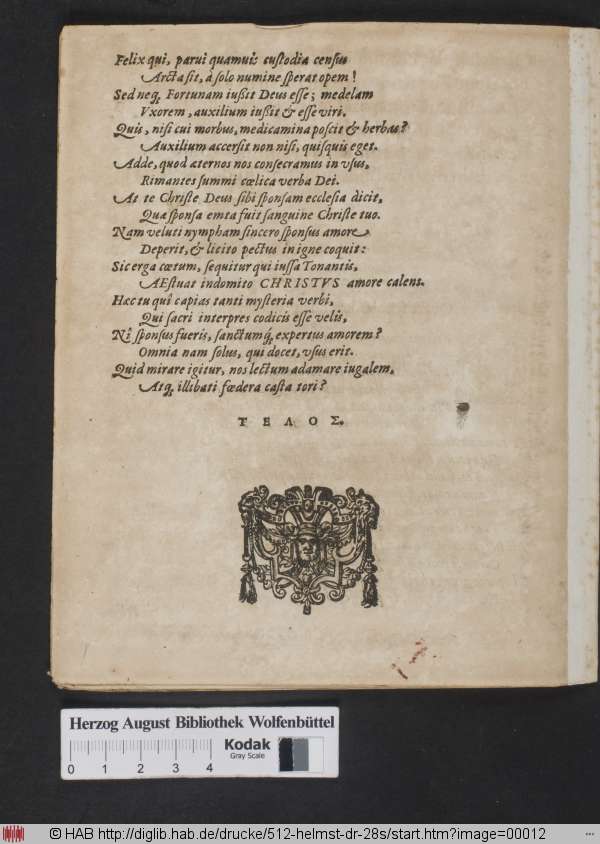 Felix qui, parui quamuis custodia census
Arcta sit, à solo numine sperat opem!
Sed neq; Fortunam iußit Deus esse; medelam
Vxorem, auxilium iußit & esse viri.
Quis, nisi cui morbus, medicamina poscit & herbas?
Auxilium accersit non nisi, quisquis eget.
Adde, quod æternos nos consecramus in vsus,
Rimantes summi cœlica verba Dei.
At te Christe Deus sibi sponsam ecclesia dicit,
Quæ sponsa emta fuit sanguine Christe tuo.
Nam veluti nympham sincero sponsus amore
Deperit, & licito pectus in igne coquit:
Sic erga cœtum, sequitur qui iussa Tonantis,
AEstuat indomito CHRISTVS amore calens.
Hæc tu quî capias tanti mysteria verbi,
Qui sacri interpres codicis esse velis,
Nî sponsus fueris, sanctumq́; expertus amorem?
Omnia nam solus, qui docet, vsus erit.
Quid mirare igitur, nos lectum adamare iugalem,
Atq; illibati fœdera casta tori?
ΤΕΛΟΣ.
Herzog August Bibliothek Wolfenbüttel
0 1 2 3 4
Kodak
Gray Scale
© HAB http://diglib.hab.de/drucke/512-helmst-dr-28s/start.htm?image=00012